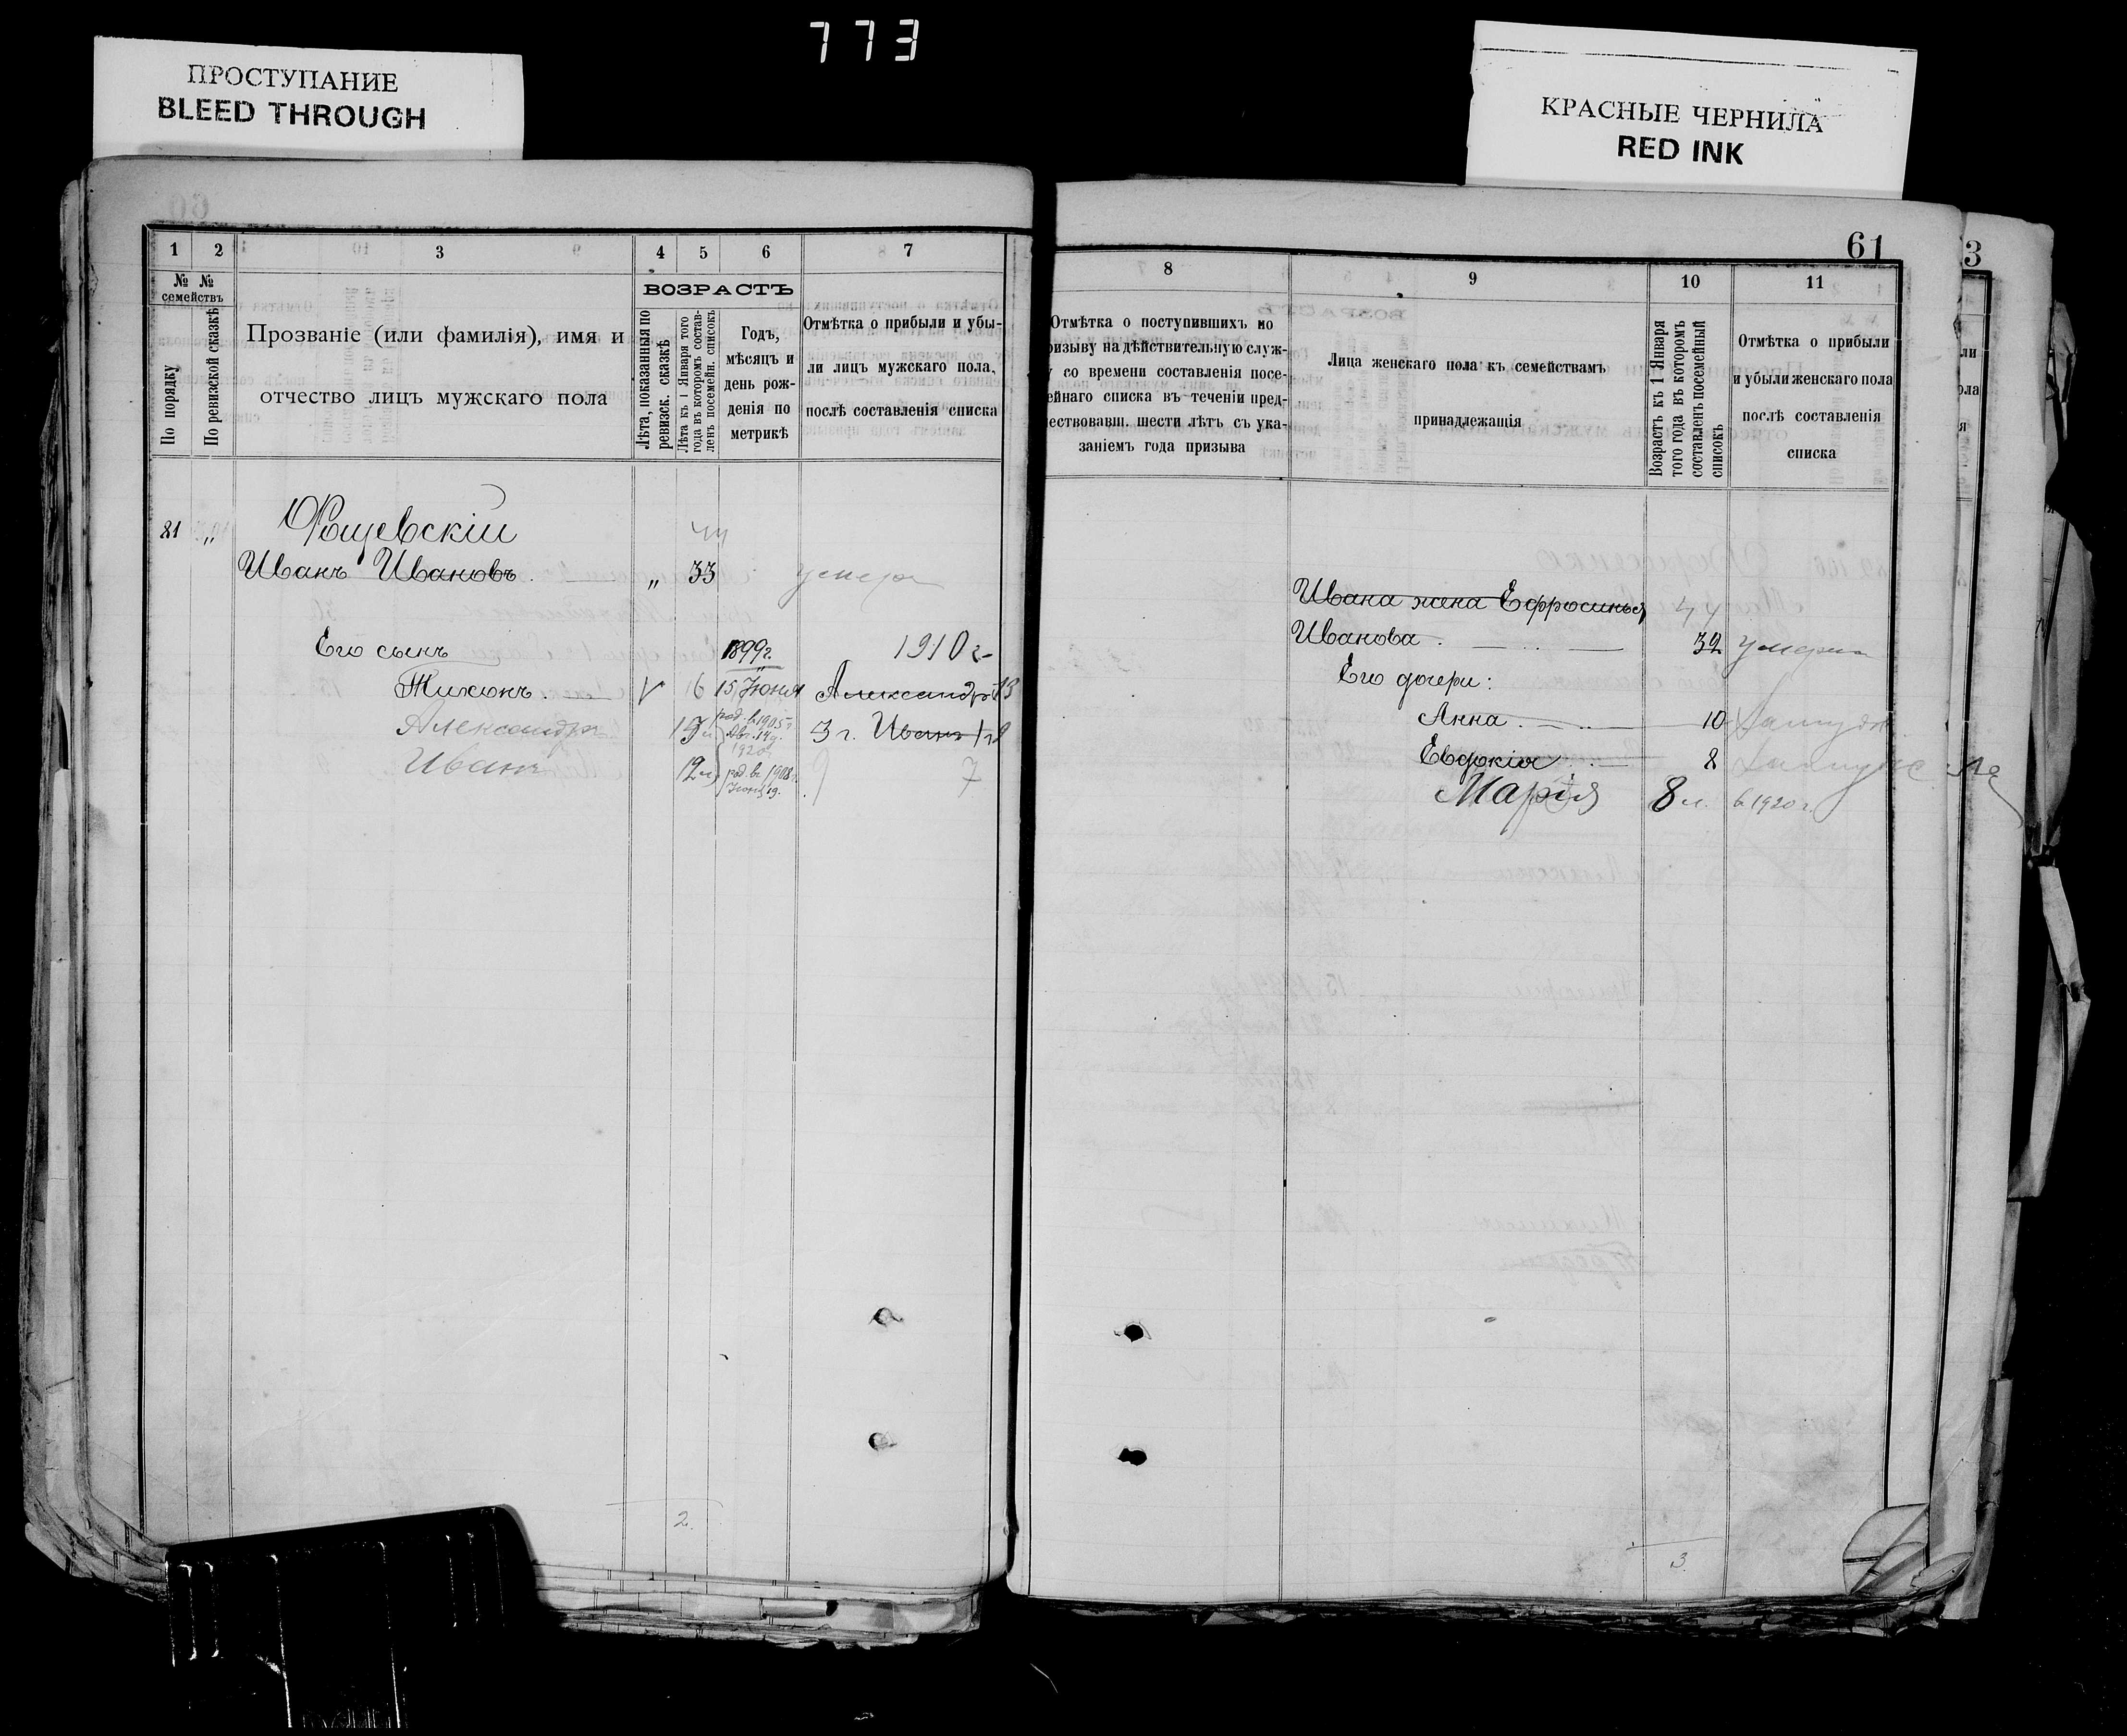 773
ПРОСТУПАНИЕ
BLEED THROUGH
КРАСНЫЕ ЧЕРНИЛА
RED INK
1 2 3 4 5 6 7
№ № семействъ
По порядку
По ревизской сказкѣ
Прозваніе (или фамилія), имя и
отчество лицъ мужскаго пола
ВОЗРАСТЪ
Лѣта, показанныя по
ревизск. сказкѣ
Лѣта къ 1 Января того
года въ которомъ состав-
ленъ посемейн. списокъ
Годъ,
мѣсяцъ и
день рож-
денія по
метрикѣ
Отмѣтка о прибыли и убы-
ли лицъ мужскаго пола,
послѣ составленія списка
81 „
Иванъ Ивановъ. „ 33 умеръ
Его сынъ 1899г. 1910 г.
Тихонъ. 16 15 Іюня Александръ
Александръ род. в 1905 3 г. Иванъ
1920
Иванъ 12 род. в 1908 7
2
61
3
8 9 10 11
Отмѣтка о поступившихъ по
ризыву на дѣйствительную служ-
у со времени составленія посе-
ейнаго списка въ теченіи пред-
ествовавш. шести лѣтъ съ ука-
заніемъ года призыва
Лица женскаго пола къ семействамъ
принадлежащія
Возрастъ къ 1 Января
того года въ которомъ
составленъ посемейный
списокъ
Отмѣтка о прибыли
и убыли женскаго пола
послѣ составленія
списка
Ивана жена Ефросинья
Иванова. 32 умерла
Его дочери:
Анна. 10 Замужъ
Евдокія 8
Марія 8 л. в 1920 г.
3